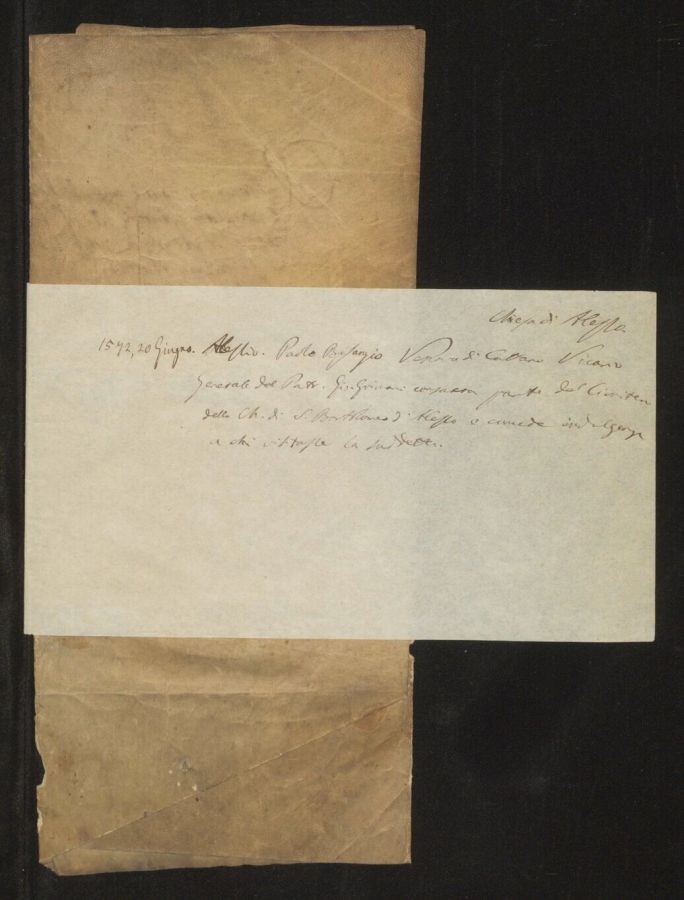 Chiesa di Alesso
1572, 20 Giugno. Alesso. Paolo Bisanzio Vescovo di Cattaro Vicario
Generale del Patr. Gio. Grimani consacra parte del Cimitero
della Ch. di S. Bartolomeo di Alesso e concede indulgenza
a chi visitasse la suddetta.